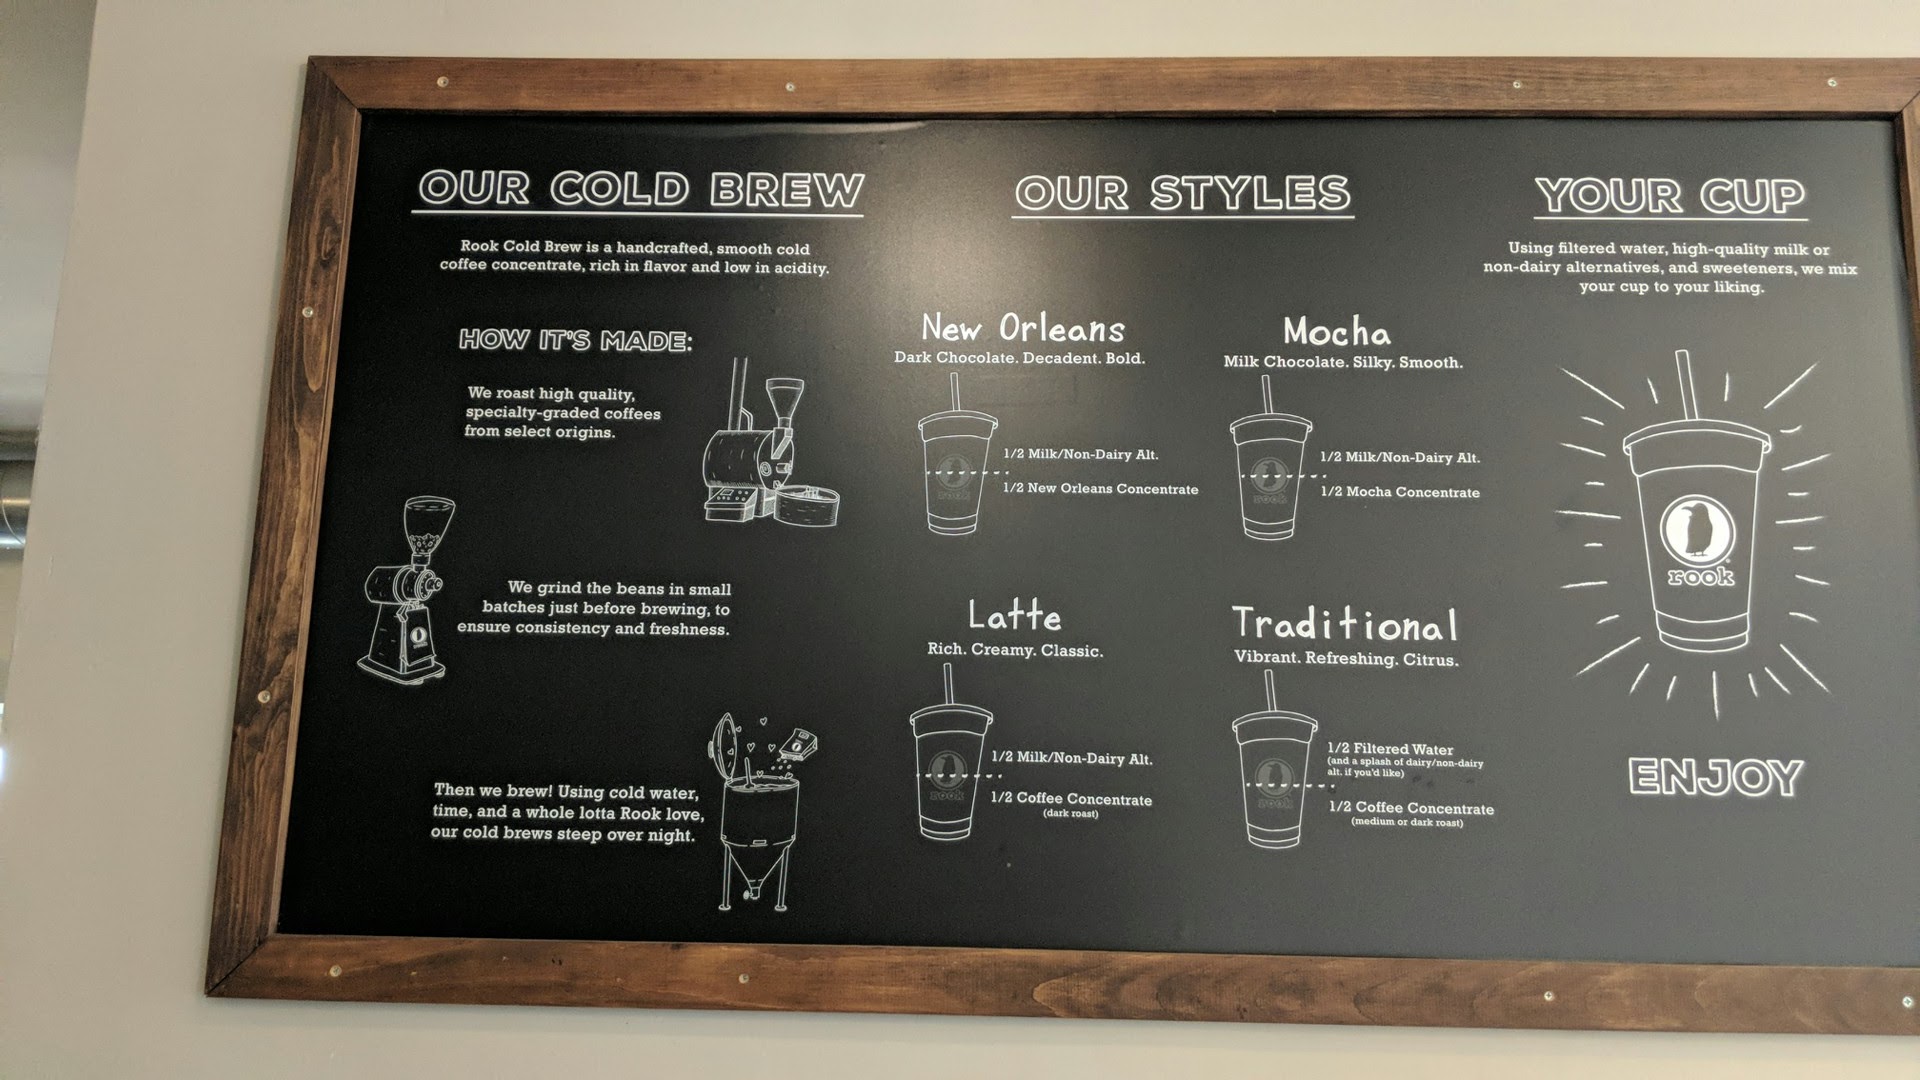 OUR COLD BREW
Rook Cold Brew is a handcrafted, smooth cold
coffee concentrate, rich in flavor and low in acidity.
HOW IT'S MADE:
We roast high quality,
specialty-graded coffees
from select origins.
We grind the beans in small
batches just before brewing, to
ensure consistency and freshness.
Then we brew! Using cold water,
time, and a whole lotta Rook love,
our cold brews steep over night.
OUR STYLES
New Orleans
Dark Chocolate. Decadent. Bold.
1/2 Milk/Non-Dairy Alt.
1/2 New Orleans Concentrate
rook
Mocha
Milk Chocolate. Silky. Smooth.
1/2 Milk/Non-Dairy Alt.
1/2 Mocha Concentrate
rook
Latte
Rich. Creamy. Classic.
1/2 Milk/Non-Dairy Alt.
1/2 Coffee Concentrate
(dark roast)
rook
Traditional
Vibrant. Refreshing. Citrus.
1/2 Filtered Water
(and a splash of dairy/non-dairy
alt. if you'd like)
1/2 Coffee Concentrate
(medium or dark roast)
rook
YOUR CUP
Using filtered water, high-quality milk or
non-dairy alternatives, and sweeteners, we mix
your cup to your liking.
rook
ENJOY